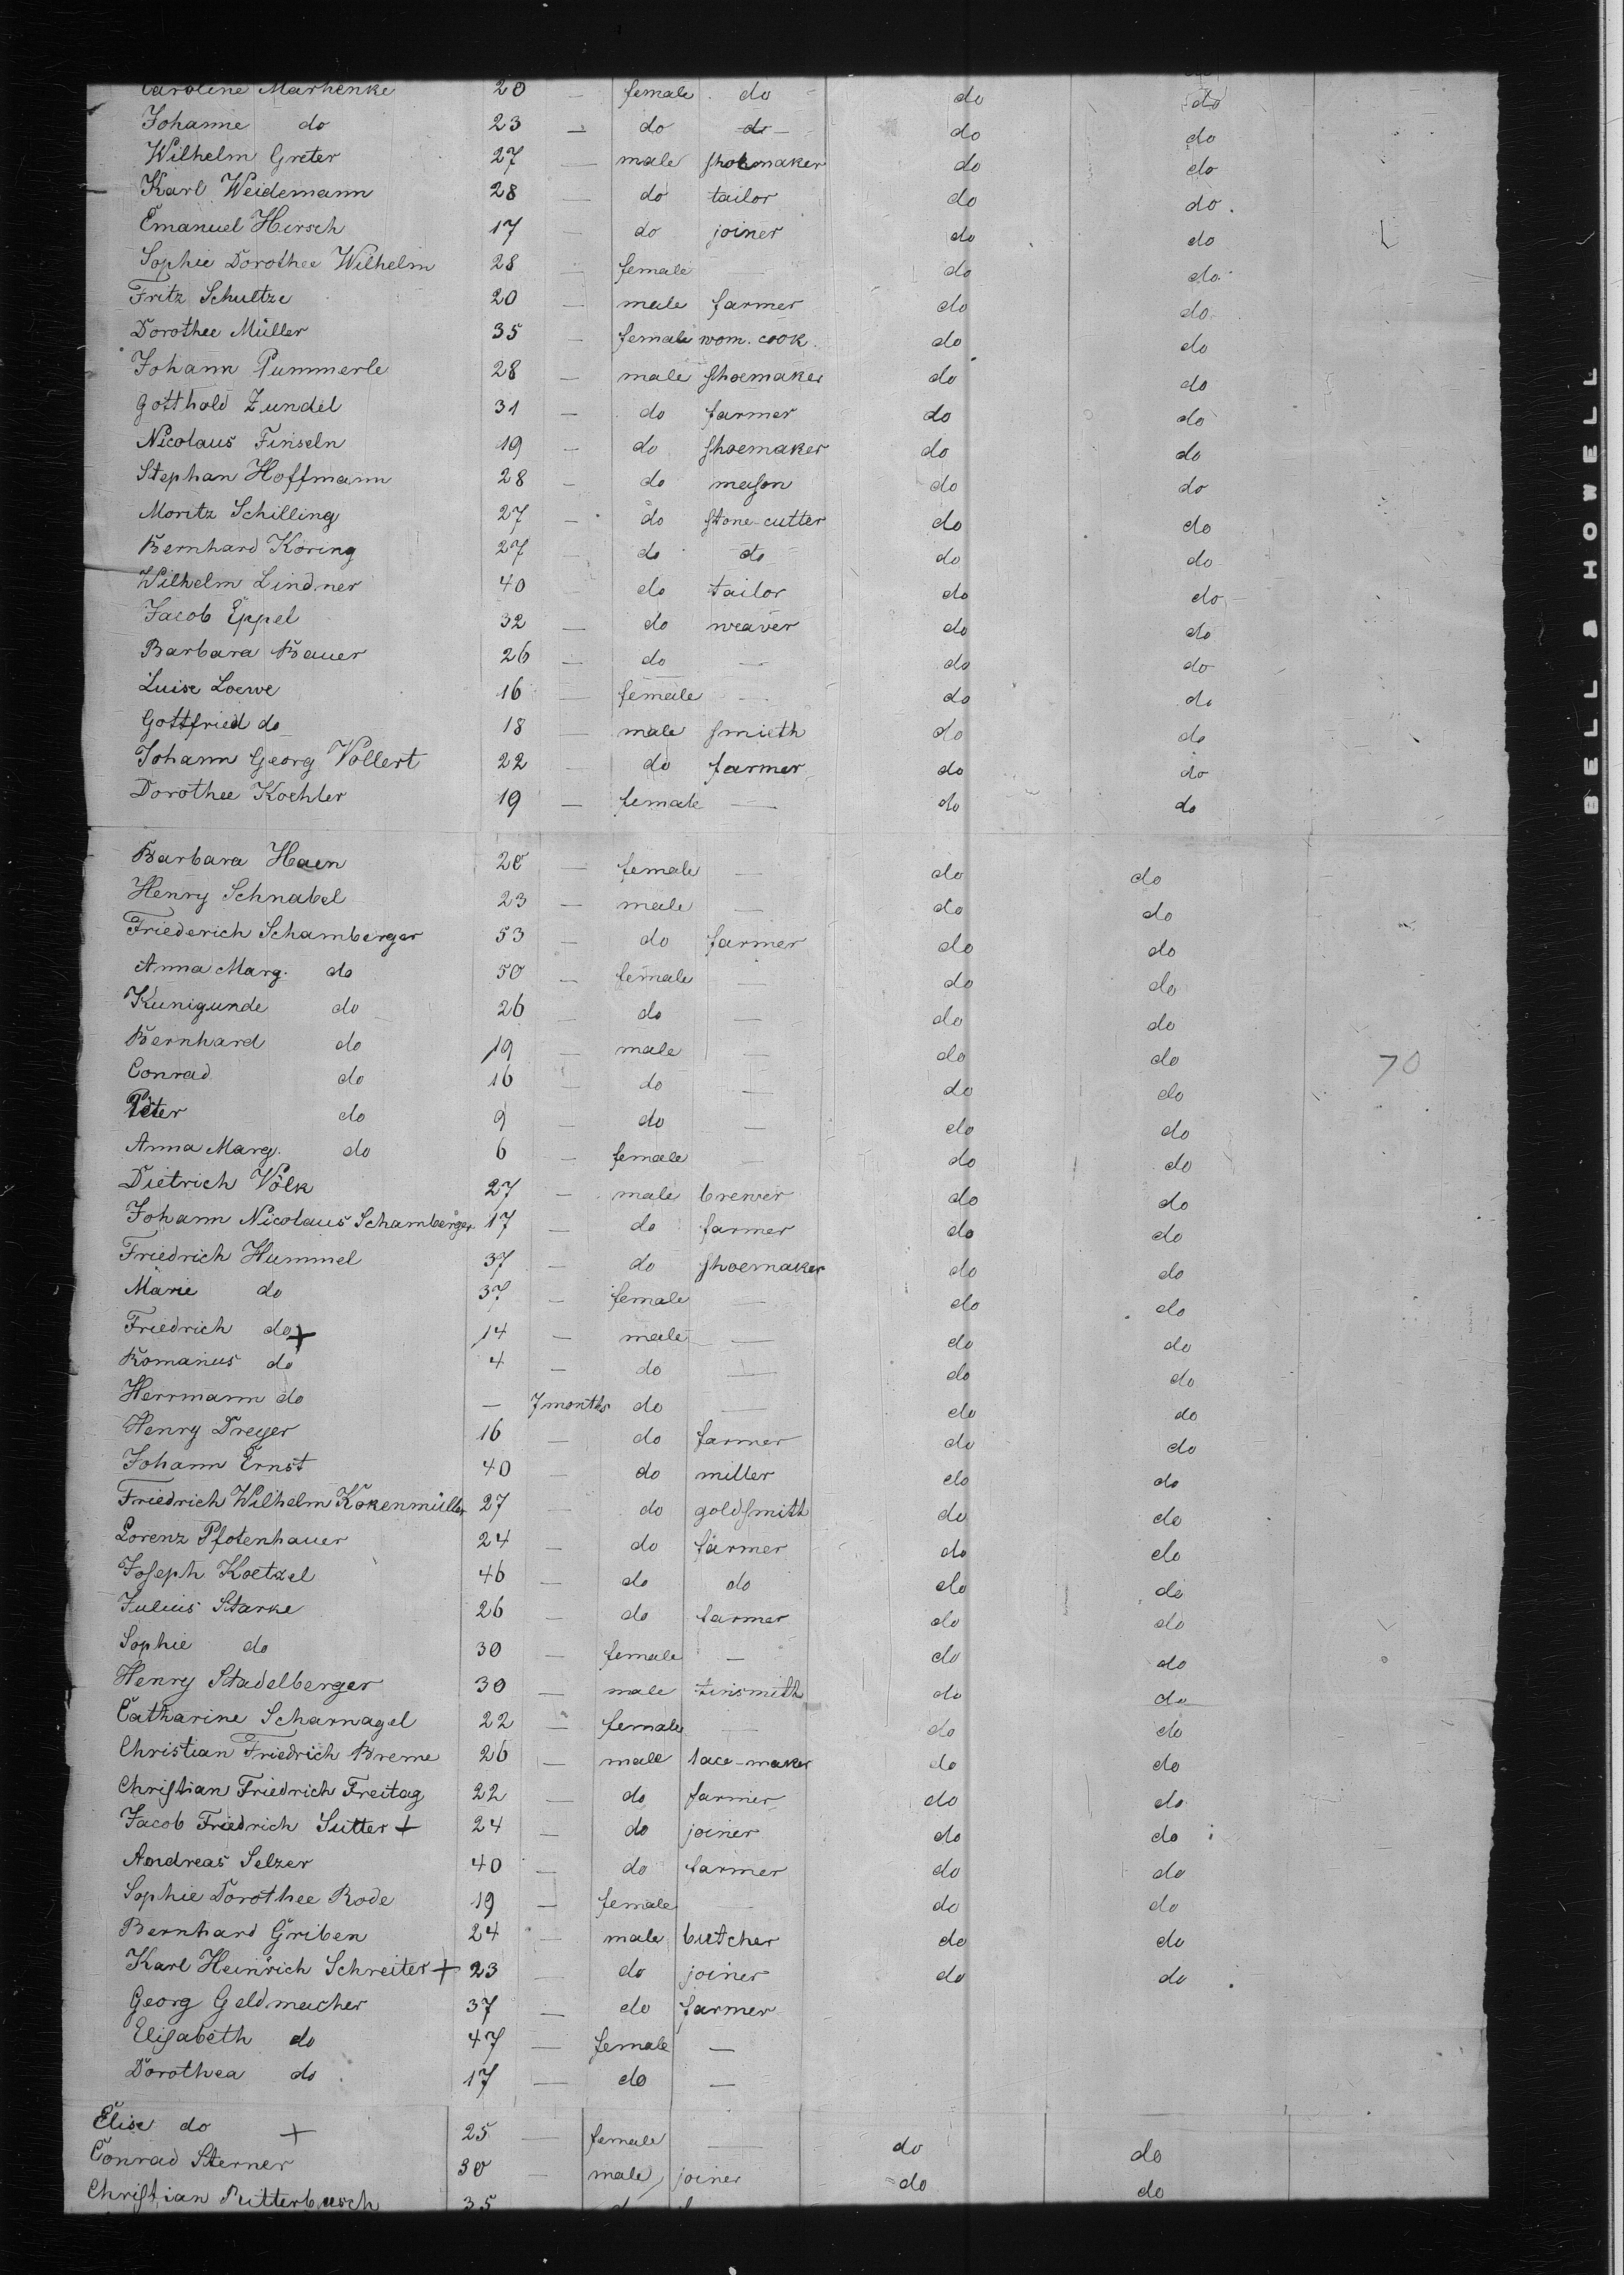 Caroline Marhenke 20 — female do do do
Johanne do 23 — do do do do
Wilhelm Greter 27 — male shoemaker do do
Karl Weidemann 28 — do tailor do do.
Emanuel Hirsch 17 — do joiner do do
Sophie Dorothee Wilhelm 28 — female — do do
Fritz Schultze 20 — male farmer do do
Dorothee Müller 35 — female wom. cook. do do
Johann Pummerle 28 — male shoemaker do do
Gotthold Zundel 31 — do farmer do do
Nicolaus Finseln 19 — do shoemaker do do
Stephan Hoffmann 28 — do mason do do
Moritz Schilling 27 — do stone-cutter do do
Bernhard Köring 27 — do do do do
Wilhelm Lindner 40 do tailor do do
Jacob Eppel 32 — do weaver do do
Barbara Bauer 26 — do — do do
Luise Loewe 16 — female — do do
Gottfried do 18 — male smieth do do
Johann Georg Vollert 22 — do farmer do do
Dorothee Koehler 19 — female — do do
Barbara Haen 20 — female — do do
Henry Schnabel 23 — male — do do
Friederich Schamberger 53 — do farmer do do
Anna Marg. do 50 — female — do do
Kunigunde do 26 — do — do do
Bernhard do 19 — male — do do 70
Conrad do 16 — do — do do
Peter do 9 — do — do do
Anna Marg. do 6 — female — do do
Dietrich Völk 27 — male brewer do do
Johann Nicolaus Schamberger 17 — do farmer do do
Friedrich Hummel 37 — do shoemaker do do
Marie do 37 — female — do do
Friedrich do + 14 — male — do do
Romanus do 4 — do — do do
Herrmann do — 7 months do — do do
Henry Dreyer 16 — do farmer do do
Johann Ernst 40 — do miller do do
Friedrich Wilhelm Kokenmüller 27 — do goldsmith do do
Lorenz Pfotenhauer 24 — do farmer do do
Joseph Koetzel 46 — do do do do
Julius Starke 26 — do farmer do do
Sophie do 30 — female — do do
Henry Stadelberger 30 — male tinsmith do do
Catharine Scharnagel 22 — female — do do
Christian Friedrich Breme 26 — male lace-maker do do
Christian Friedrich Freitag 22 — do farmer do do
Jacob Friedrich Sutter + 24 — do joiner do do
Andreas Selzer 40 — do farmer do do
Sophie Dorothee Rode 19 — female — do do
Bernhard Griben 24 — male butcher do do
Karl Heinrich Schreiter + 23 — do joiner do do
Georg Geldmacher 37 — do farmer
Elisabeth do 47 — female —
Dorothea do 17 — do —
Elise do + 25 — female — do do
Conrad Sterner 30 — male joiner do do
Christian Ritterbusch 35
BELL & HOWELL